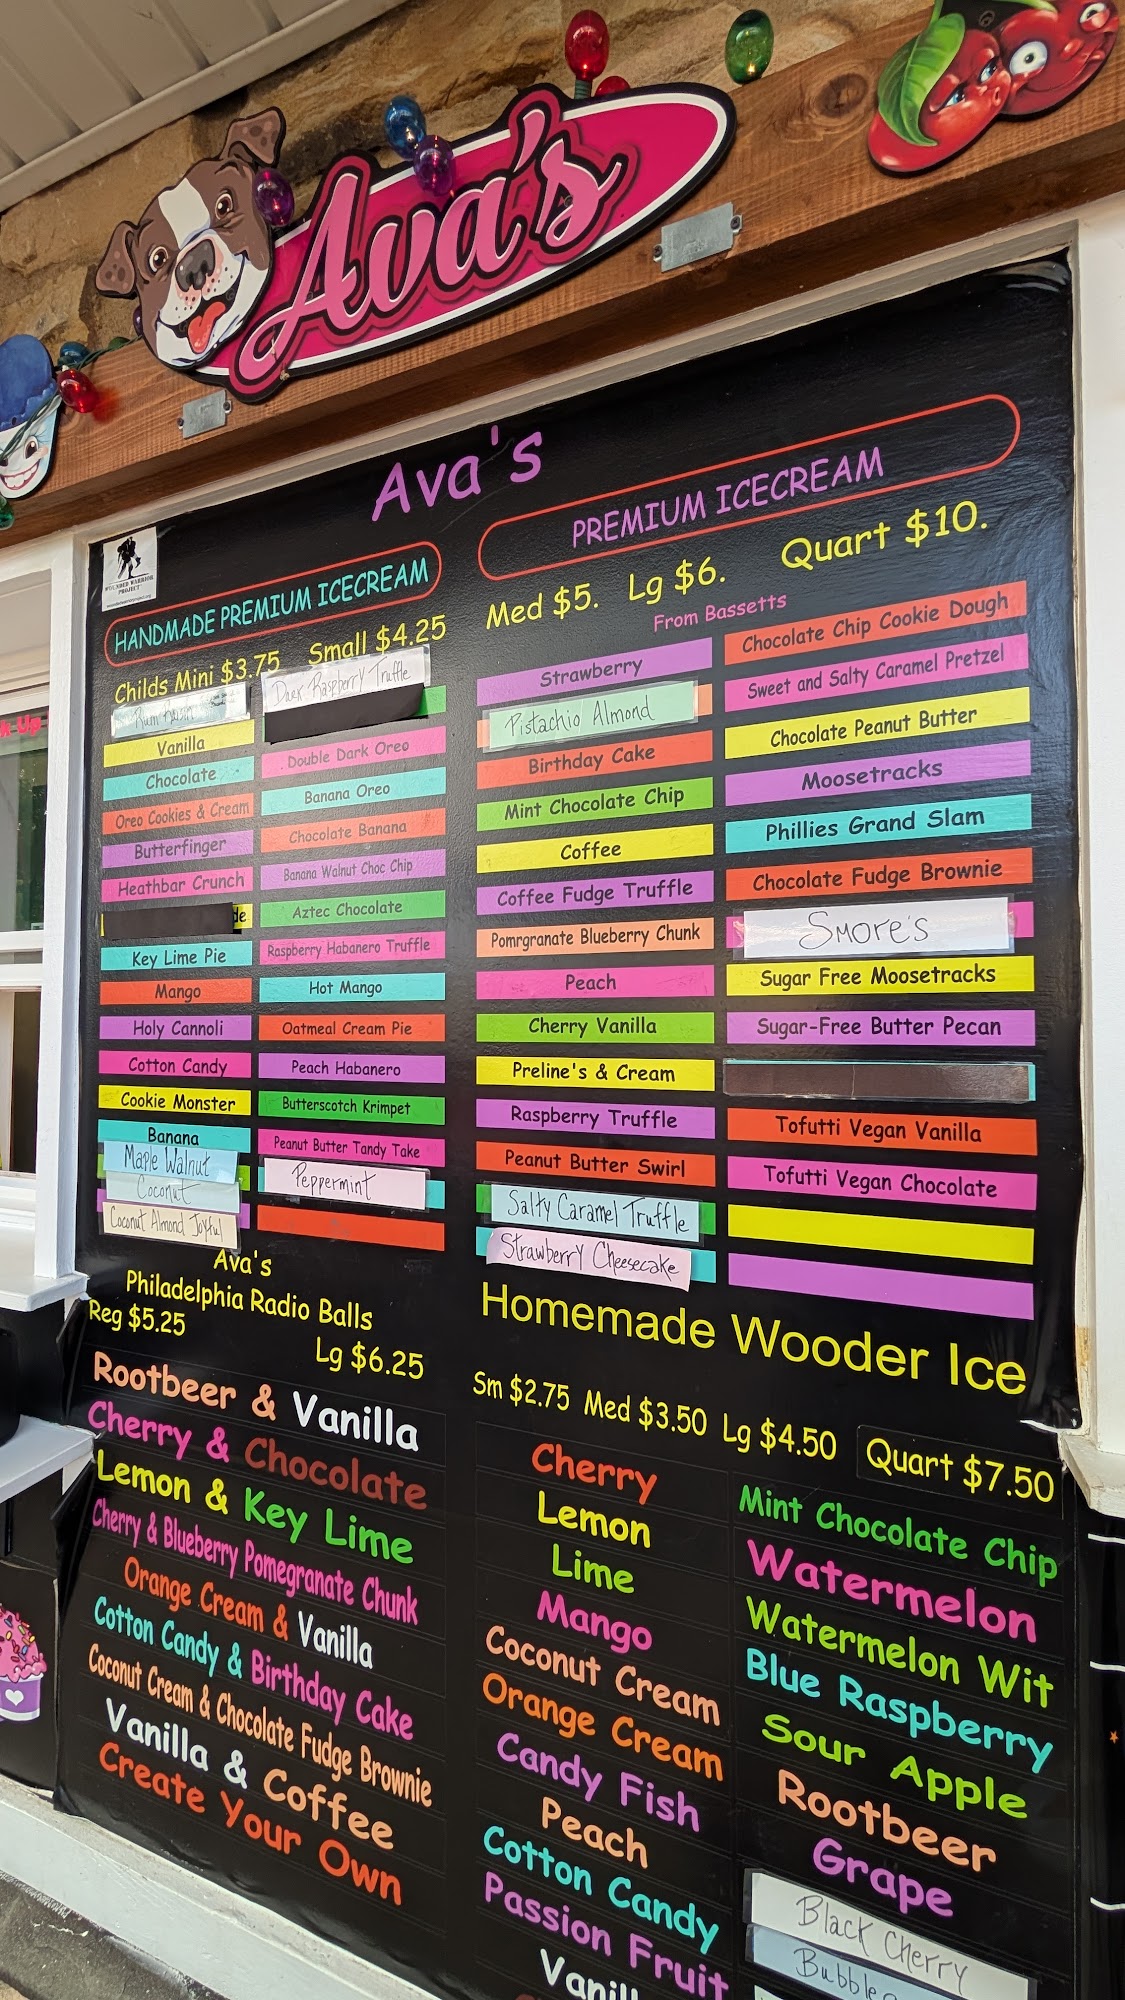 Ava's
Ava's
WOUNDED WARRIOR
PROJECT
HANDMADE PREMIUM ICECREAM
Childs Mini $3.75 Small $4.25
Rum Raisin
Vanilla
Chocolate
Oreo Cookies & Cream
Butterfinger
Heathbar Crunch
de
Key Lime Pie
Mango
Holy Cannoli
Cotton Candy
Cookie Monster
Banana
Maple Walnut
Coconut
Coconut Almond Joyful
Dark Raspberry Truffle
Double Dark Oreo
Banana Oreo
Chocolate Banana
Banana Walnut Choc Chip
Aztec Chocolate
Raspberry Habanero Truffle
Hot Mango
Oatmeal Cream Pie
Peach Habanero
Butterscotch Krimpet
Peanut Butter Tandy Take
Peppermint
PREMIUM ICECREAM
Med $5. Lg $6. Quart $10.
From Bassetts
Strawberry
Pistachio Almond
Birthday Cake
Mint Chocolate Chip
Coffee
Coffee Fudge Truffle
Pomrgranate Blueberry Chunk
Peach
Cherry Vanilla
Preline's & Cream
Raspberry Truffle
Peanut Butter Swirl
Salty Caramel Truffle
Strawberry Cheesecake
Chocolate Chip Cookie Dough
Sweet and Salty Caramel Pretzel
Chocolate Peanut Butter
Moosetracks
Phillies Grand Slam
Chocolate Fudge Brownie
Smore's
Sugar Free Moosetracks
Sugar-Free Butter Pecan
Tofutti Vegan Vanilla
Tofutti Vegan Chocolate
Ava's
Philadelphia Radio Balls
Reg $5.25
Lg $6.25
Rootbeer & Vanilla
Cherry & Chocolate
Lemon & Key Lime
Cherry & Blueberry Pomegranate Chunk
Orange Cream & Vanilla
Cotton Candy & Birthday Cake
Coconut Cream & Chocolate Fudge Brownie
Vanilla & Coffee
Create Your Own
Homemade Wooder Ice
Sm $2.75 Med $3.50 Lg $4.50 Quart $7.50
Cherry
Lemon
Lime
Mango
Coconut Cream
Orange Cream
Candy Fish
Peach
Cotton Candy
Passion Fruit
Vanill
Mint Chocolate Chip
Watermelon
Watermelon Wit
Blue Raspberry
Sour Apple
Rootbeer
Grape
Black Cherry
Bubble